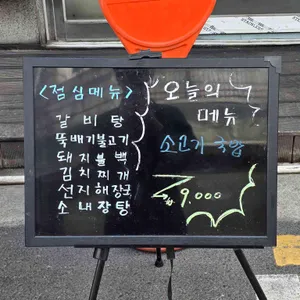 <점심메뉴>
갈비탕
뚝배기불고기
돼지불백
김치찌개
선지해장국
소내장탕
오늘의
메뉴
소고기 국밥
9.000